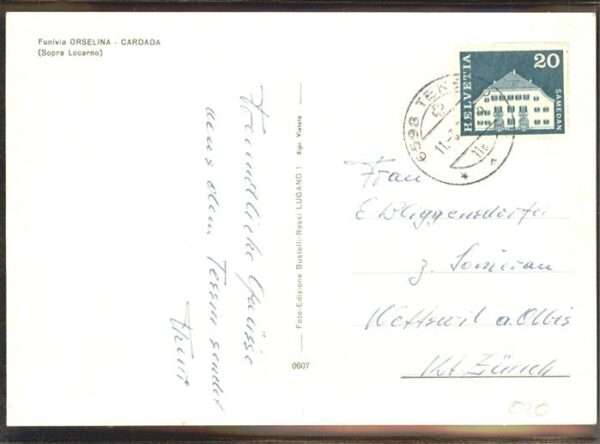 Funivia ORSELINA - CARDADA
(Sopra Locarno)
20
HELVETIA
SAMEDAN
6598 TEN
11.
Freundliche Grüsse
aus dem Tessin sendet
Foto-Edizione Bustelli-Rossi LUGANO 1 Rip. Vietata
0607
Frau
E. Waggensdorfer
z.
Hettswil a. Albis
Kt Zürich